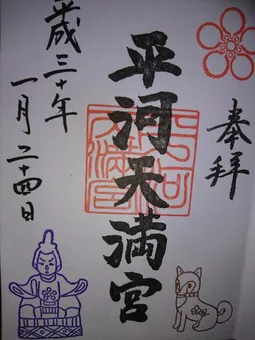 奉拝
平河天満宮
歳三十年
一月二十四日